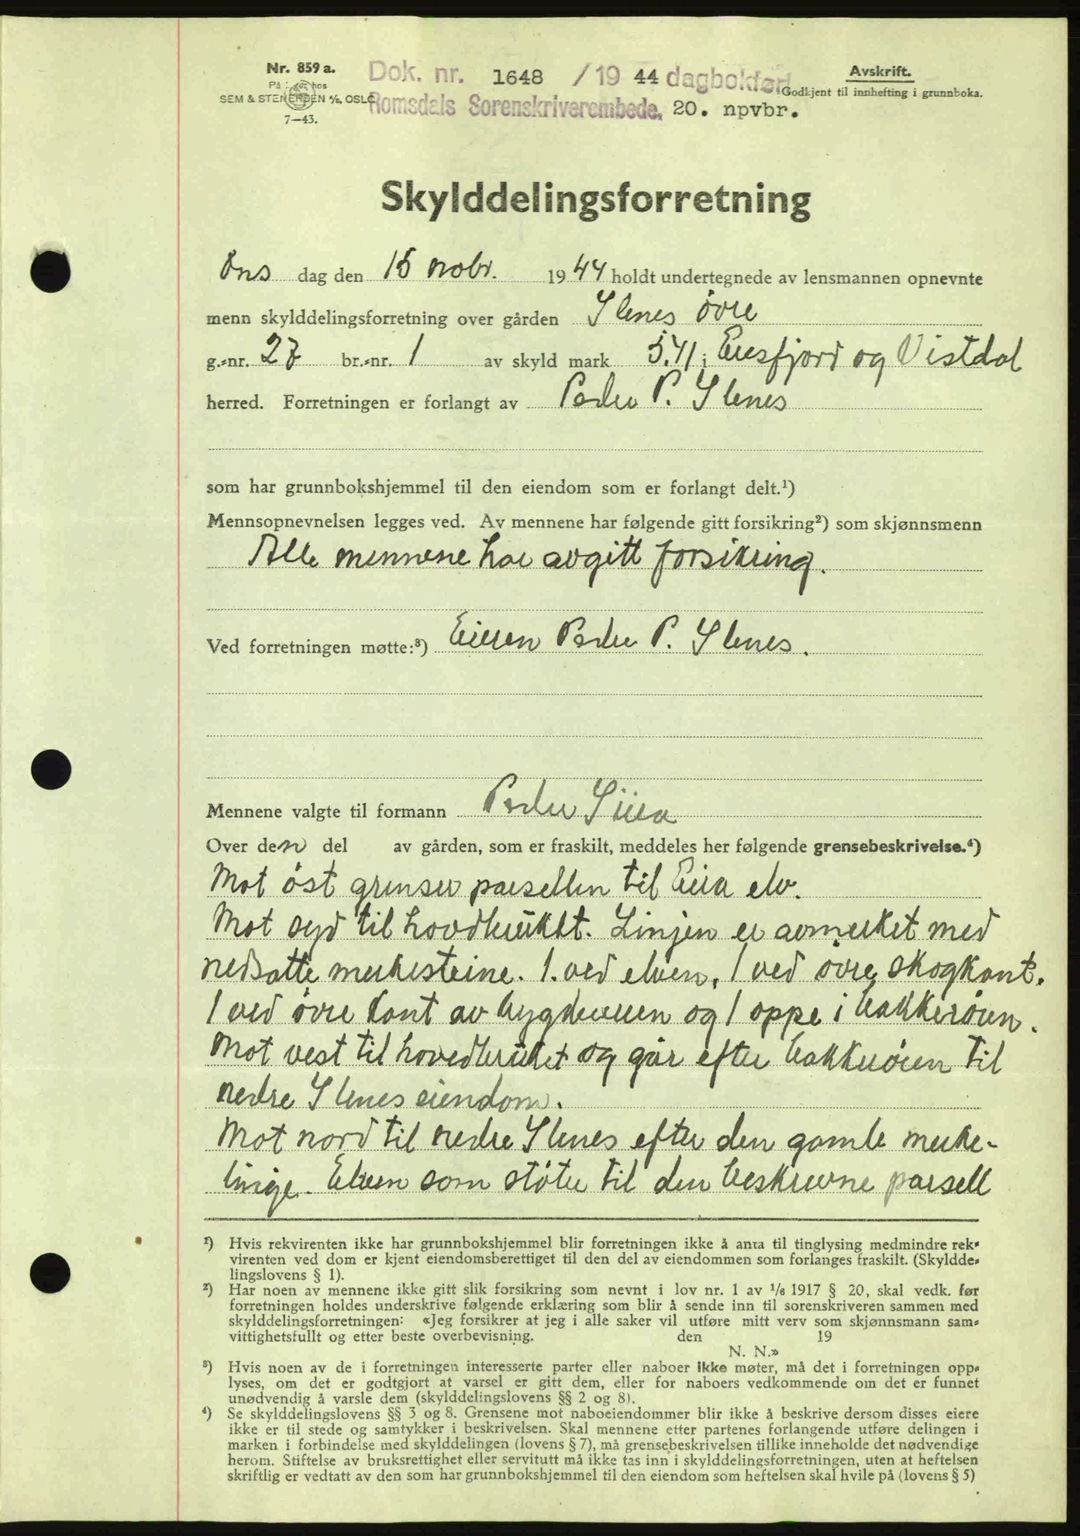 Nr. 859 a.
På hos
SEM & STENERSEN A/S, OSLO
7—43.
Dok. nr. 1648 /19 44 dagbokført
Romsdals Sorenskriverembede, 20. npvbr.
Avskrift.
Godkjent til innhefting i grunnboka.
Skylddelingsforretning
Ons dag den 15 novbr. 1944 holdt undertegnede av lensmannen opnevnte
menn skylddelingsforretning over gården Slenes øvre
g.-nr. 27 br.-nr. 1 av skyld mark 5.41 i Eresfjord og Vistdal
herred. Forretningen er forlangt av Peder P. Slenes
som har grunnbokshjemmel til den eiendom som er forlangt delt.¹)
Mennsopnevnelsen legges ved. Av mennene har følgende gitt forsikring²) som skjønnsmenn
Alle mennene har avgitt forsikring.
Ved forretningen møtte:³) Eieren Peder P. Slenes.
Mennene valgte til formann Peder Siira
Over den del av gården, som er fraskilt, meddeles her følgende grensebeskrivelse.⁴)
Mot öst grenser parsellen til Eira elv.
Mot syd til hovdbruket. Linjen er avmerket med
nedsatte merkesteine. 1. ved elven, 1 ved øvre skogkant.
1 ved øvre kant av bygdeveien og 1 oppe i bakkerøien.
Mot vest til hovedbruket og går efter bakkerøien til
nedre Slenes eiendom.
Mot nord til nedre Slenes efter den gamle merke-
linje. Elven som støter til den beskrevne parsell
¹) Hvis rekvirenten ikke har grunnbokshjemmel blir forretningen ikke å anta til tinglysing medmindre rek-
virenten ved dom er kjent eiendomsberettiget til den del av eiendommen som forlanges fraskilt. (Skyldde-
lingslovens § 1).
²) Har noen av mennene ikke gitt slik forsikring som nevnt i lov nr. 1 av 1/6 1917 § 20, skal vedk. før
forretningen holdes underskrive følgende erklæring som blir å sende inn til sorenskriveren sammen med
skylddelingsforretningen: «Jeg forsikrer at jeg i alle saker vil utføre mitt verv som skjønnsmann sam-
vittighetsfullt og etter beste overbevisning. den 19
N. N.»
³) Hvis noen av de i forretningen interesserte parter eller naboer ikke møter, må det i forretningen opp-
lyses, om det er godtgjort at varsel er gitt dem, eller for naboers vedkommende om det er funnet
unødvendig å varsle dem (skylddelingslovens §§ 2 og 8).
⁴) Se skylddelingslovens §§ 3 og 8. Grensene mot naboeiendommer blir ikke å beskrive dersom disses eiere
ikke er til stede og samtykker i beskrivelsen. Skal mennene etter partenes forlangende utføre delingen i
marken i forbindelse med skylddelingen (lovens § 7), må grensebeskrivelsen tillike inneholde det nødvendige
herom. Stiftelse av bruksrettighet eller servitutt må ikke tas inn i skylddelingsforretningen, uten at heftelsen
skriftlig er vedtatt av den som har grunnbokshjemmel til den eiendom som heftelsen skal hvile på (lovens § 5)